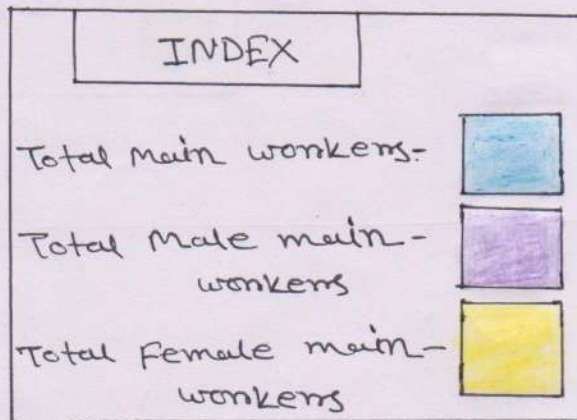 INDEX
Total Main workers-
Total Male main-
workers
Total Female main-
workers